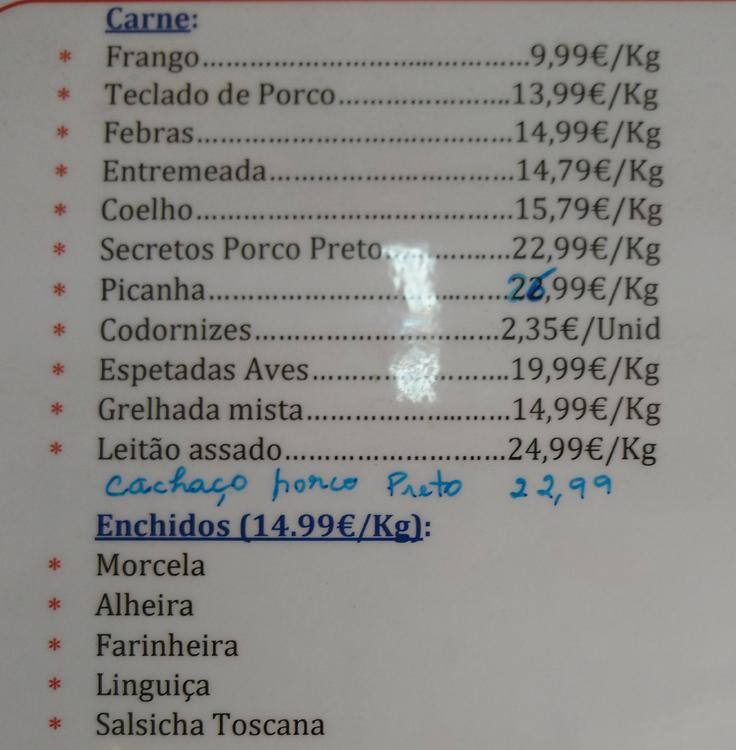 Carne:
* Frango.......................................9,99€/Kg
* Teclado de Porco....................13,99€/Kg
* Febras.....................................14,99€/Kg
* Entremeada............................14,79€/Kg
* Coelho.....................................15,79€/Kg
* Secretos Porco Preto...............22,99€/Kg
* Picanha...................................26,99€/Kg
* Codornizes............................2,35€/Unid
* Espetadas Aves.......................19,99€/Kg
* Grelhada mista.......................14,99€/Kg
* Leitão assado..........................24,99€/Kg
Cachaço porco Preto 22,99
Enchidos (14.99€/Kg):
* Morcela
* Alheira
* Farinheira
* Linguiça
* Salsicha Toscana